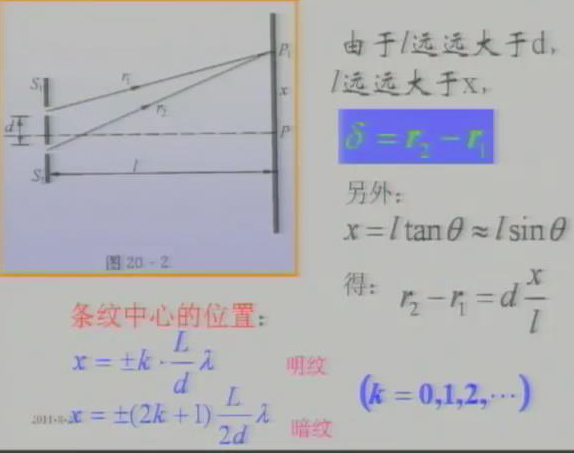 S₁
r₁
P₁
r₂
x
d
P
S₂
l
图20-2
由于l远远大于d,
l远远大于x,
δ = r₂ − r₁
另外:
x = l tanθ ≈ l sinθ
得: r₂ − r₁ = d x/l
条纹中心的位置:
x = ±k · L/d λ 明纹
(k = 0,1,2,⋯)
x = ±(2k+1) L/2d λ 暗纹